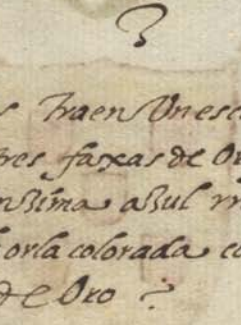 ?
s traen Un esc
tres faxas de O
nzima azul m
orla colorada co
de Oro ?